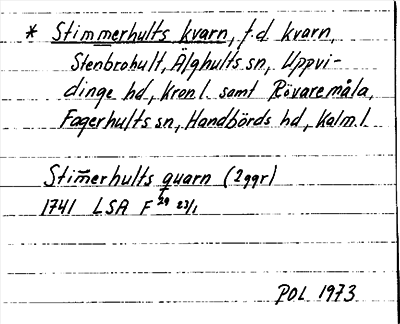 * Stimmerhults kvarn, f.d kvarn,
Stenbrohult, Älghults sn, Uppvi-
dinge hd, Kron.l. samt Rövaremåla,
Fagerhults sn, Handbörds hd, Kalm.l
Stim̅erhults quarn (2ggr)
1741 LSA F 29 23/1
POL 1973